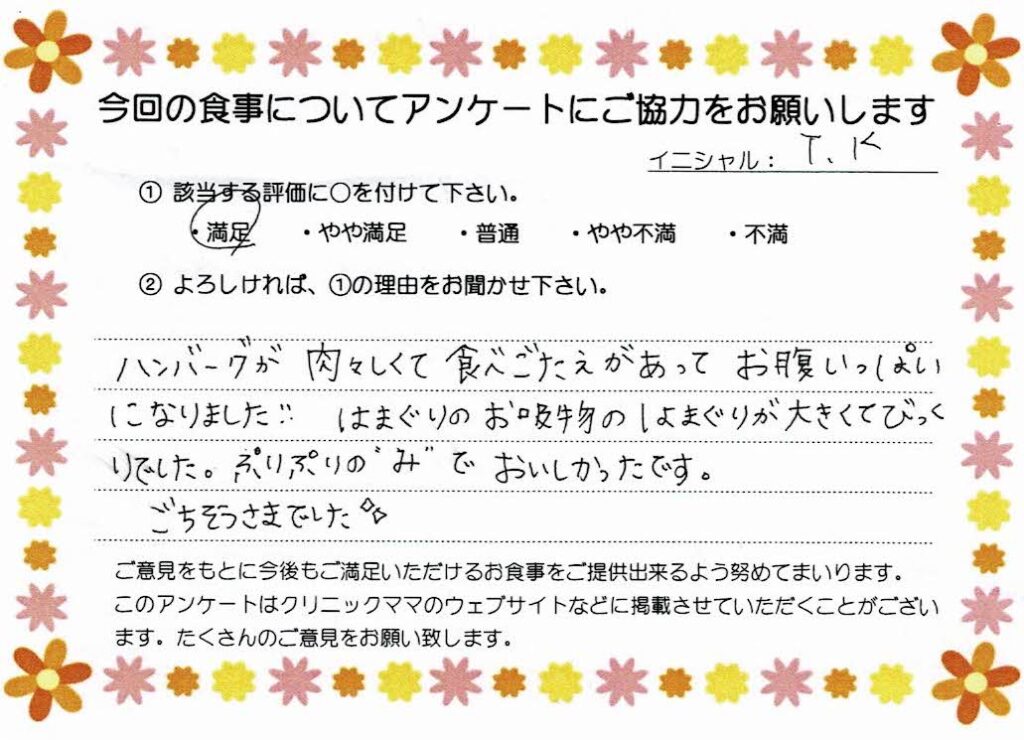 今回の食事についてアンケートにご協力をお願いします
イニシャル： T.K
① 該当する評価に○を付けて下さい。
・満足 ・やや満足 ・普通 ・やや不満 ・不満
② よろしければ、①の理由をお聞かせ下さい。
ハンバーグが 肉々しくて 食べごたえがあって お腹いっぱい
になりました!! はまぐりの お吸物の はまぐりが大きくてびっく
りでした。ぷりぷりの"み"で おいしかったです。
ごちそうさまでした
ご意見をもとに今後もご満足いただけるお食事をご提供出来るよう努めてまいります。
このアンケートはクリニックママのウェブサイトなどに掲載させていただくことがござい
ます。たくさんのご意見をお願い致します。